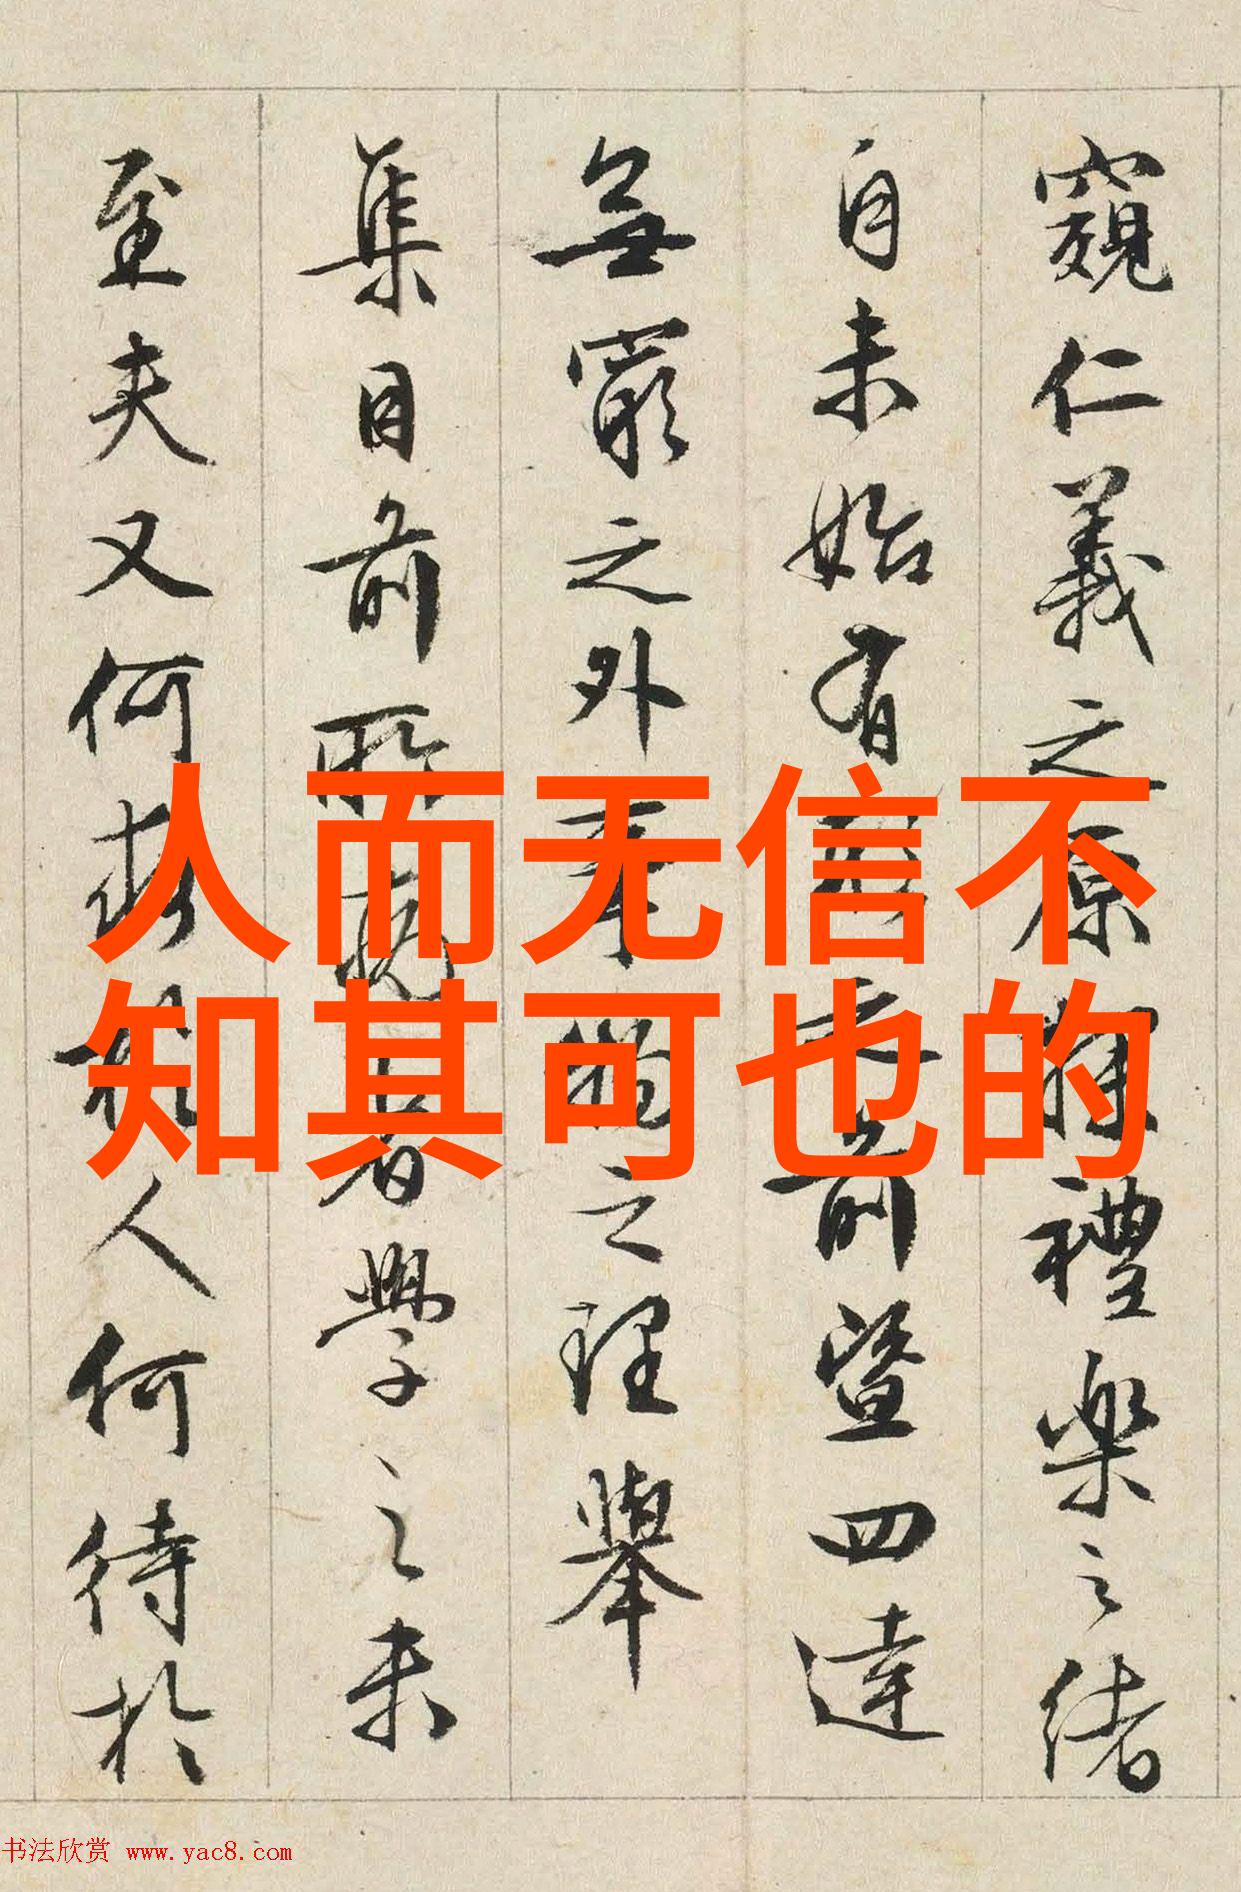 窺仁義之原探禮樂之緒
自未始有形之前暨四達
無窮之外事物之理舉
集目前所病者學之未
至夫又何求於人何待於
人而无信不
知其可也的
书法欣赏 www.yac8.com